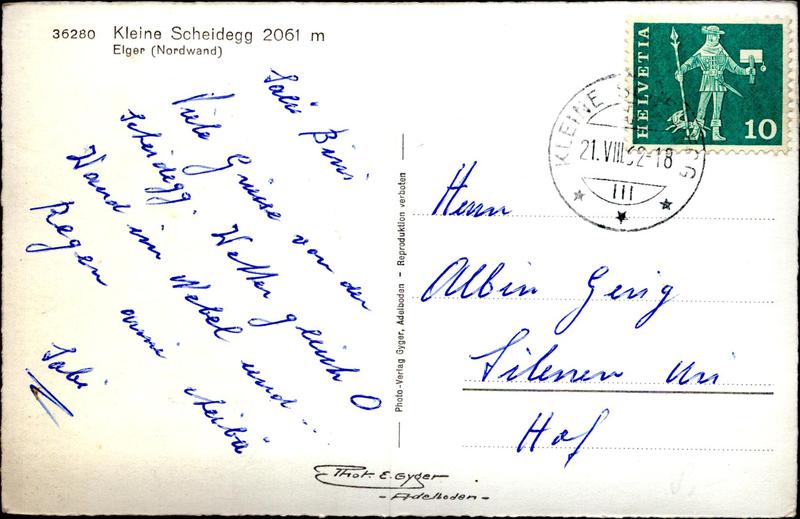 36280 Kleine Scheidegg 2061 m
Eiger (Nordwand)
Salü
Viele Grüsse von der
Scheidegg. Wetter gleich 0
Wand im Nebel und
Regen
HELVETIA
10
KLEINE SCHEIDEGG
21.VIII.62-18
III
Herrn
Albin Gerig
Silenen Uri
Hof
Photo-Verlag Gyger, Adelboden – Reproduktion verboten
Phot. E. Gyger
- Adelboden -